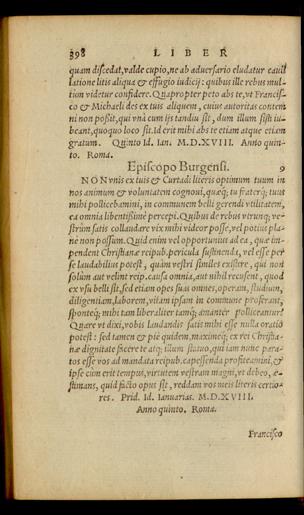 398 LIBER
quam discedat, valde cupio, ne ab adversario eludatur cavil
latione litis aliqua & effugio iudicij: quibus ille rebus mul=
tum videtur confidere. Quapropter peto abs te, vt Francis=
co & Michaeli des ex tuis aliquem, cuius autoritas contem
ni non possit, qui vnà cum ijs tandiu sit, dum illum sisti iu=
beant, quoquo loco sit. Id erit mihi abs te etiam atque etiam
gratum. Quinto Id. Ian. M.D.XVIII. Anno quin=
to. Roma.
Episcopo Burgensi. 9
NONnvis ex tuis & Curtadi literis optimum tuum in
nos animum & voluntatem cognoui, quæq; tu fraterq; tuus
mihi pollicebamini, in communem belli gerendi vtilitatem,
ea omnia libentissimè percepi. Quibus de rebus vtrunq; ve=
strûm satis collaudare vix mihi videor posse, vel potius pla=
nè non possum. Quid enim vel opportunius ad ea, quæ im=
pendent Christianæ reipub. pericula sustinenda, vel esse per
se laudabilius potest, quàm vestri similes existere, qui non
solùm aut velint reip. causa omnia, aut nihil recusent, quod
ex vsu belli sit, sed etiam opes suas omnes, operam, studium,
diligentiam, laborem, vitam ipsam in commune proferant,
sponteq; mihi tam liberaliter tamq; amanter polliceantur?
Quare vt dixi, vobis laudandis satis mihi esse nulla oratio
potest: sed tamen & piè quidem, maximeq; ex rei Christia=
næ dignitate facere te atq; illum statuo, qui iam nunc para=
tos esse vos ad mandata reipub. capessenda profiteamini. &
ipse cùm erit tempus, virtutem vestram magni, vt debeo, æ=
stimans, quid facto opus sit, reddam vos meis literis certio=
res. Prid. Id. Ianuarias. M.D.XVIII.
Anno quinto. Roma.
Francisco